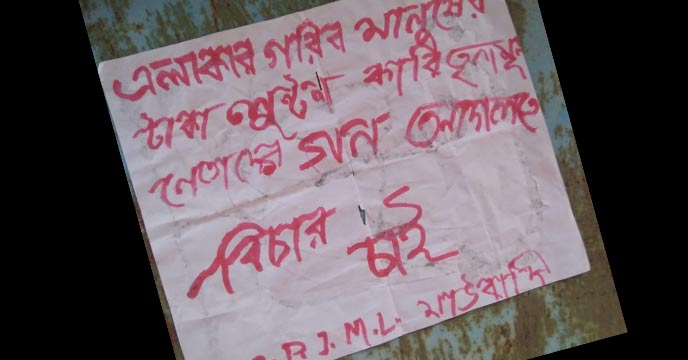 এলাকার গরিব মানুষের
টাকা লুন্টন কারি তৃণমূল
নেতাদের গন আদালতে
বিচার চাই
P.I.M.L. মাওবাদী